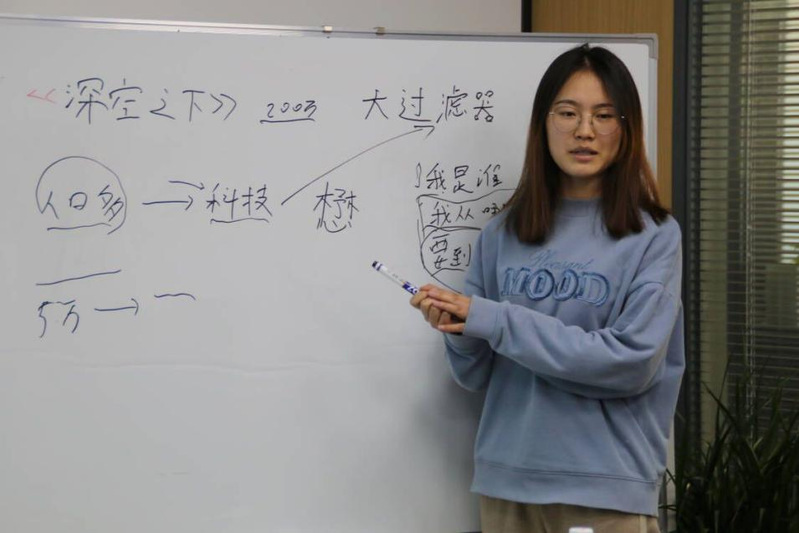 《深空之下》 2003 大过滤器
人口多 → 科技 懋
我是谁
我从
要到
5万 → 一
Pleasant
MOOD